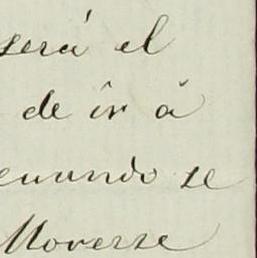 será el
de ir á
se
Moverse